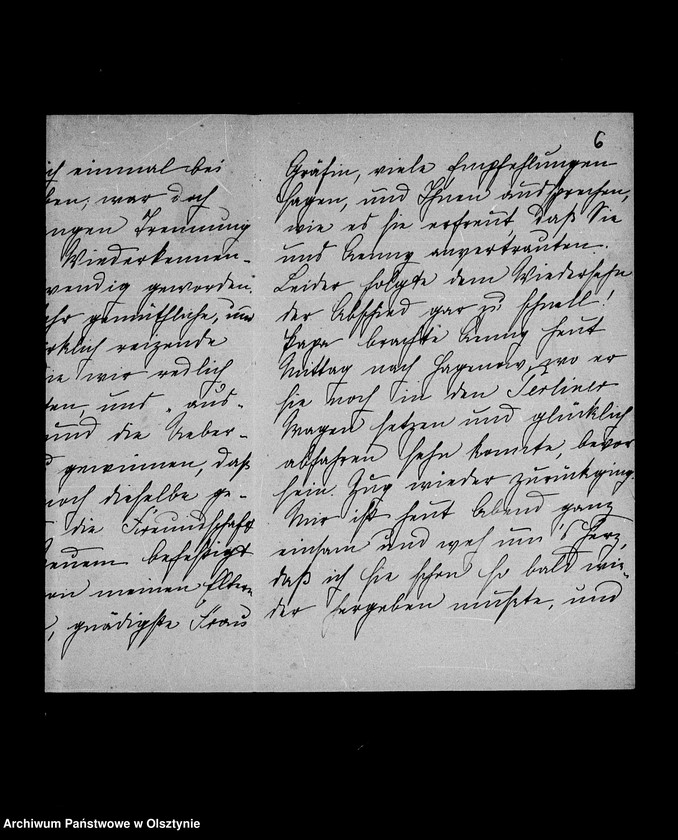 ich einmal bei
ben; war doch
ngen Trennung
Wiederkennen-
wendig geworden.
ehr gemüthliche, und
rklich reizende
ie wir redlich
ten, und „aus-
und die Ueber-
d gewinnen, daß
noch dieselbe ge-
die Freundschaft
euem befestigt
en meinen Eltern
, gnädigste Frau
6
Gräfin, viele Empfehlungen
sagen, und Ihnen aussprechen,
wie es sie erfreut, daß Sie
uns Aenny anvertrauten.
Leider folgte dem Wiedersehn
der Abschied gar zu schnell!
Papa brachte Aenny heut
Mittag nach Hagenow, wo er
sie noch in den Berliner
Wagen setzen und glücklich
abfahren sehn konnte, bevor
sein Zug wieder zurückging.
Mir ist heut Abend ganz
einsam und weh um's Herz,
daß ich sie schon so bald wie-
der hergeben mußte, und
Archiwum Państwowe w Olsztynie